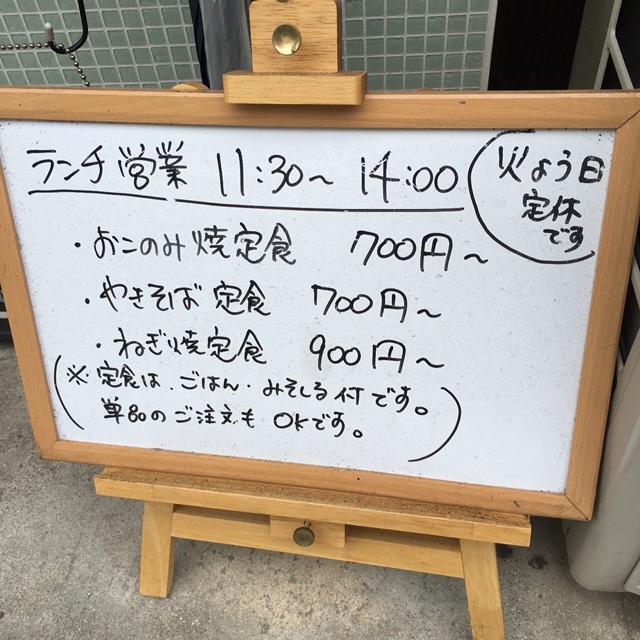 ランチ営業 11:30～14:00
火よう日
定休
です
・おこのみ焼定食 700円～
・やきそば定食 700円～
・ねぎ焼定食 900円～
(※定食は、ごはん・みそしる付です。
単品のご注文もOKです。)